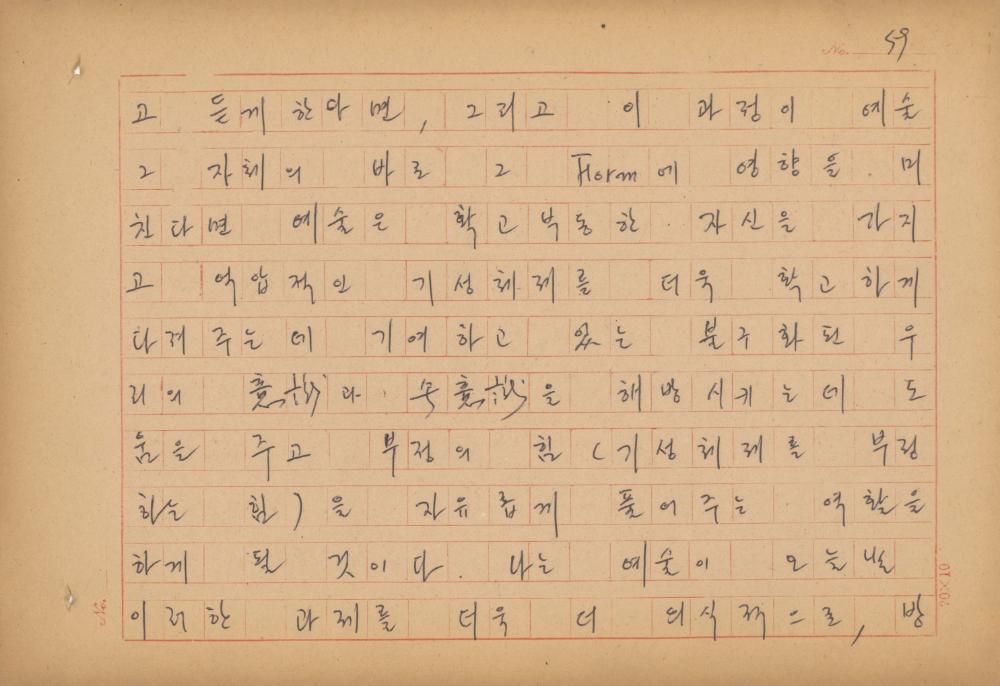 No. 59
고 듣게 한다면, 그리고 이 과정이 예술
그 자체의 바로 그 Form에 영향을 미
친다면 예술은 확고부동한 자신을 가지
고 억압적인 기성체제를 더욱 확고하게
다져 주는데 기여하고 있는 불구화된 우
리의 意識과 무意識을 해방시키는데 도
움을 주고 부정의 힘(기성체제를 부정
하는 힘)을 자유롭게 풀어주는 역할을
하게 될 것이다. 나는 예술이 오늘날
이러한 과제를 더욱 더 의식적으로, 방
20×10
No.